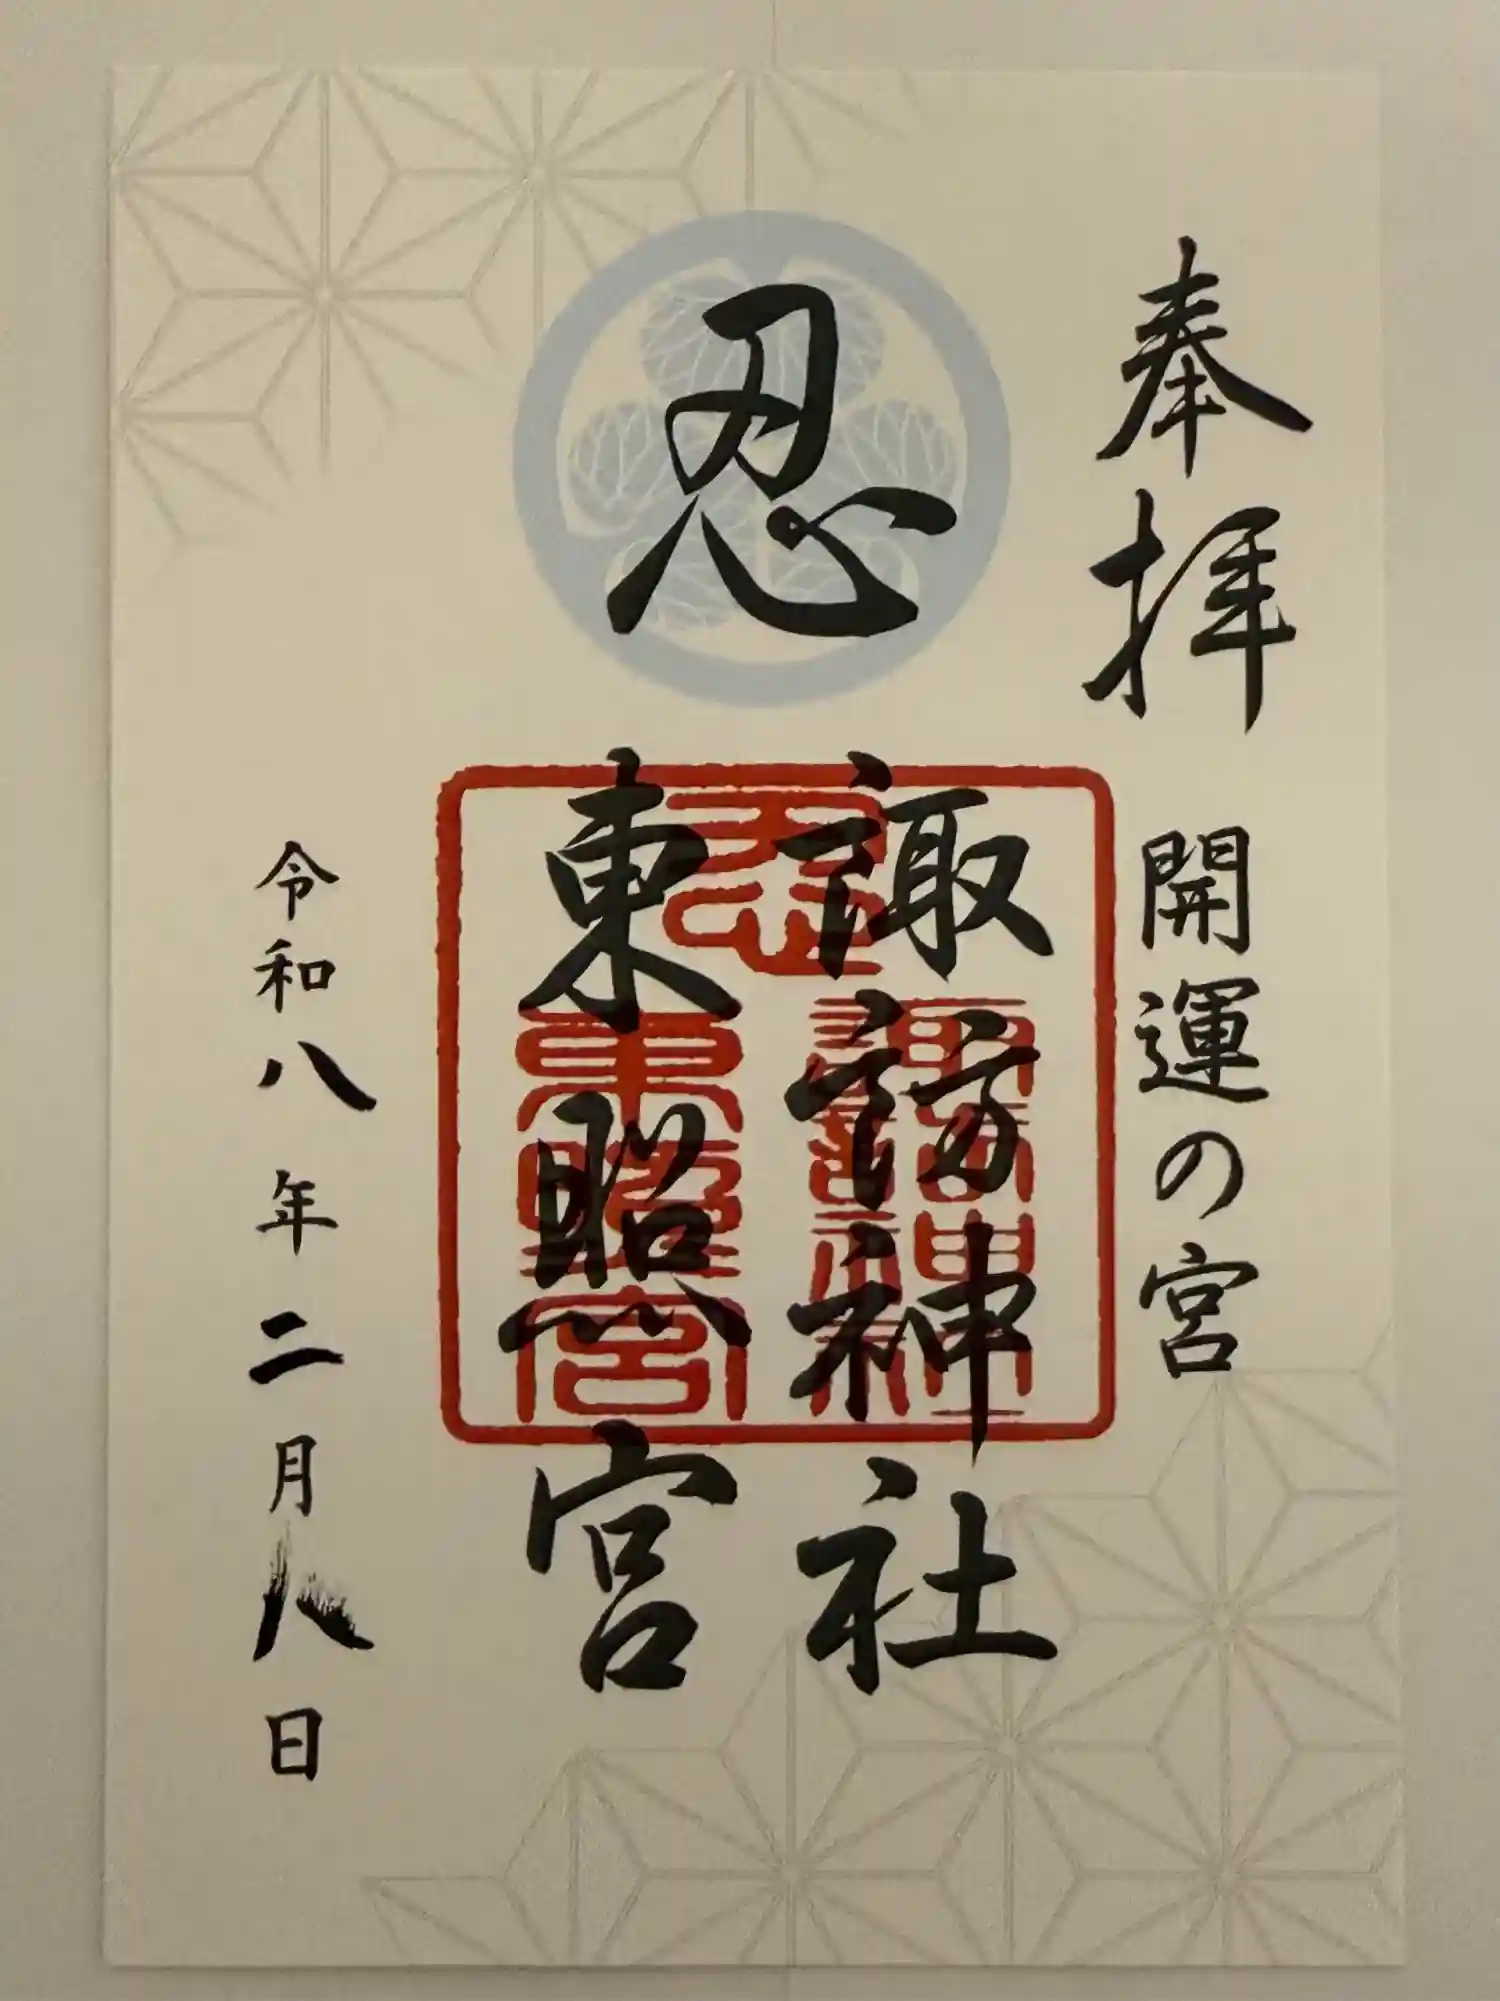 奉拝
開運の宮
忍
諏訪神社
東照宮
令和八年二月八日
忍
諏訪神社
東照宮